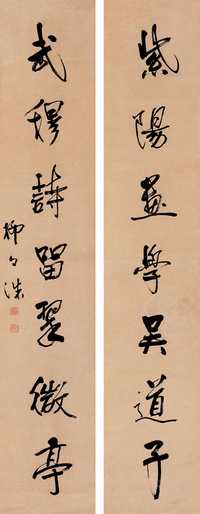 紫陽畫學吳道子
武穆詩留翠微亭
柳⼸渼